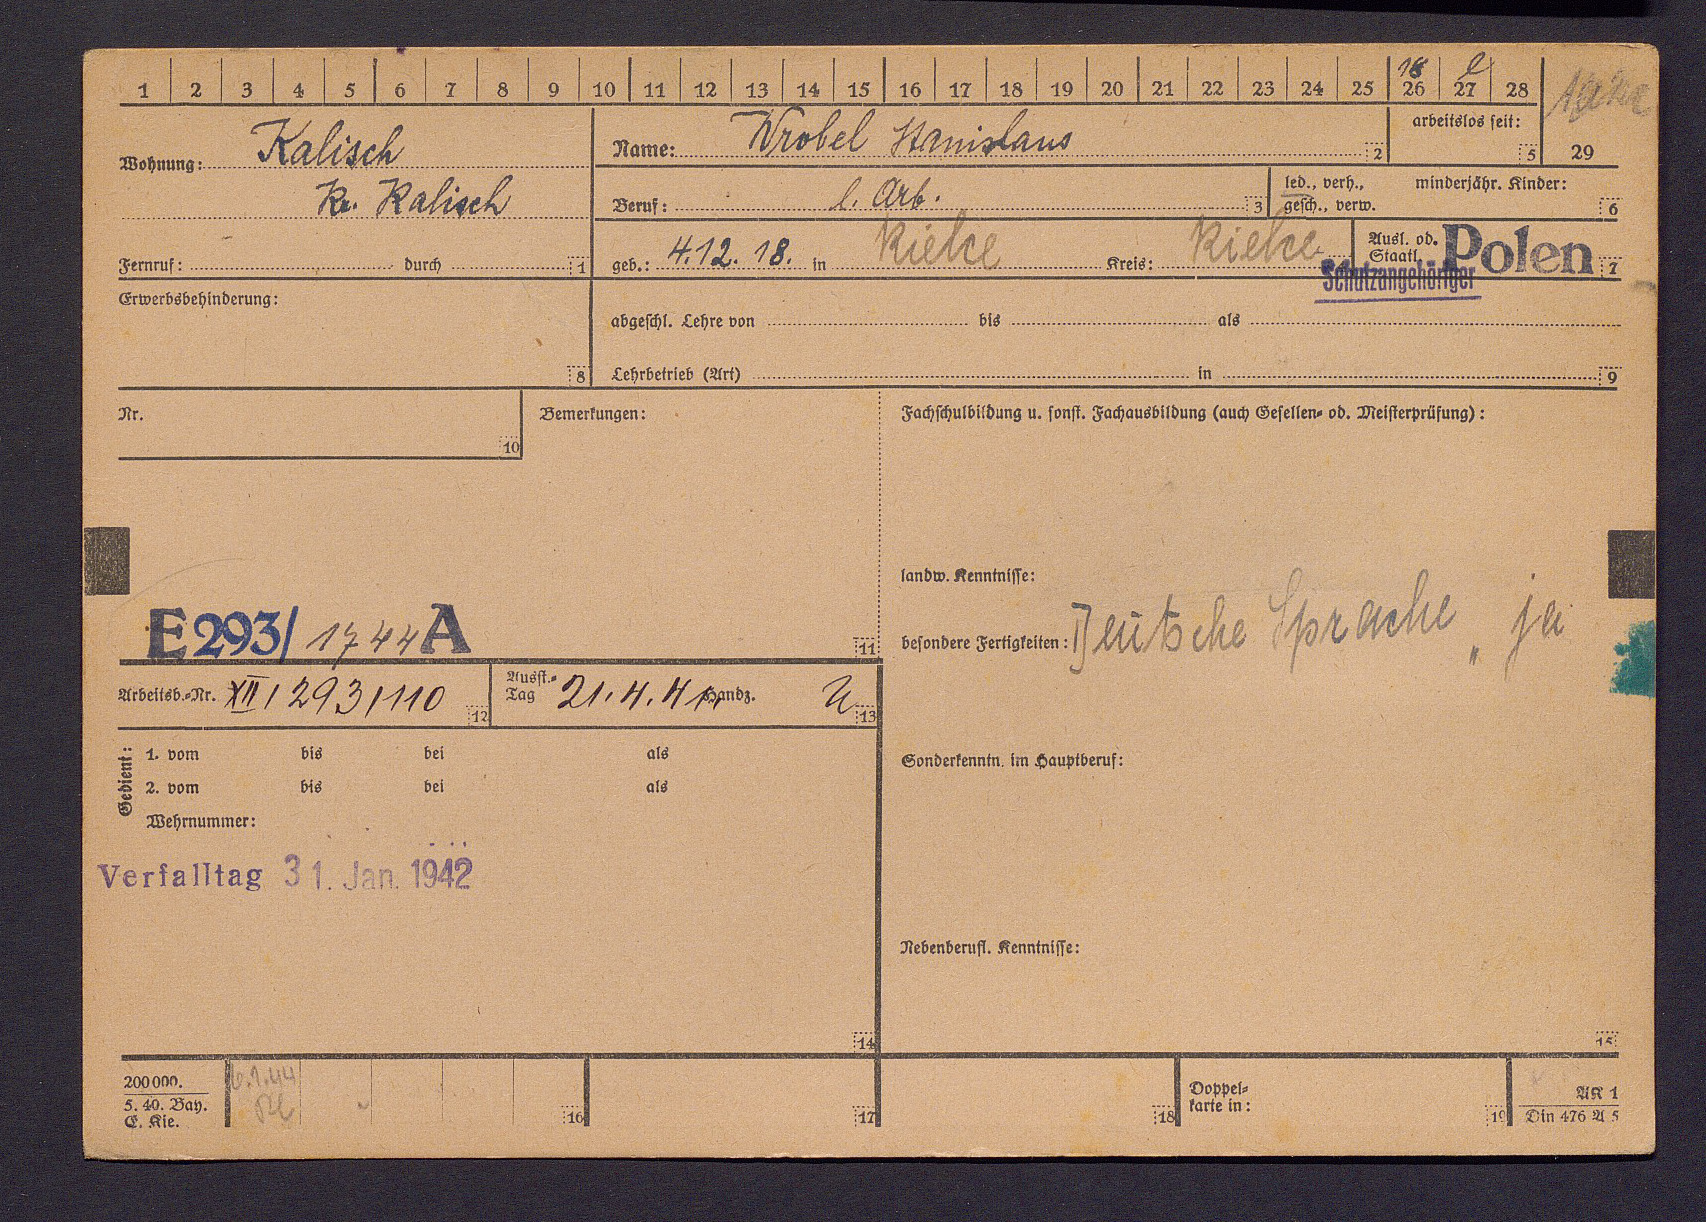 1 2 3 4 5 6 7 8 9 10 11 12 13 14 15 16 17 18 19 20 21 22 23 24 25 26 27 28
18
Wohnung: Kalisch
Kr. Kalisch
Fernruf: durch 1
Name: Wrobel Stanislaus 2
arbeitslos seit: 5
29
Beruf: l. Arb. 3
led., verh., gesch., verw.
minderjähr. Kinder: 6
geb.: 4.12.18. in Kielce Kreis: Kielce
Ausl. od. Staatl. Polen 7
Schutzangehöriger
Erwerbsbehinderung: 8
abgeschl. Lehre von bis als
Lehrbetrieb (Art) in 9
Nr. 10
Bemerkungen:
Fachschulbildung u. sonst. Fachausbildung (auch Gesellen- od. Meisterprüfung):
landw. Kenntnisse:
E293/ 1744 A 11
besondere Fertigkeiten: Deutsche Sprache „ ja
Arbeitsb.-Nr. XII/293/110 12
Ausst.-Tag 21.4.41. Handz. 13
Gedient:
1. vom bis bei als
2. vom bis bei als
Wehrnummer:
Sonderkenntn. im Hauptberuf:
Verfalltag 31. Jan. 1942
Nebenberufl. Kenntnisse:
14
15
200000.
5. 40. Bay.
E. Kie.
6.1.44
16
17
18
Doppel-
karte in: 19
AK 1
Din 476 A 5